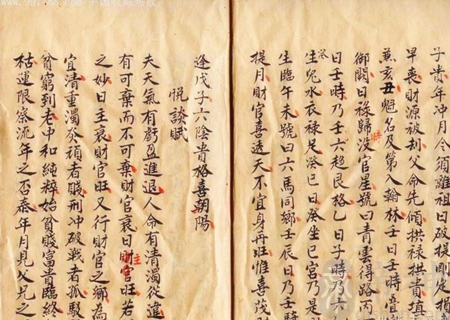 子貴年冲月令須離祖日破提則定損
早喪財源被刦父命先傾拱禄拱貴填
亥丑魁名及第入翰林壬日壬時
御闕日祿歸没官星號曰青雲得路丙
日壬時乃壬六趋艮格乙日子時乃六
生兒水衣禄足癸巳日癸坐巳宫乃是
生臨午未號曰六馬同鄉壬辰日乃壬騎
提月財官喜透天不宜身再旺惟喜茂
逢戊子六陰貴格喜朝陽
悅談賦
夫天氣有虧盈進退人命有清濁從違
有可棄而不可棄財官衰日主財官旺若
之妙日主衰財官旺又行財官之鄉為
宜清重濁者賤刑冲破戰者孤
貧窮到老中和純粹始貧賤富貴臨終
祜運限察流年之否泰年月見父兄之